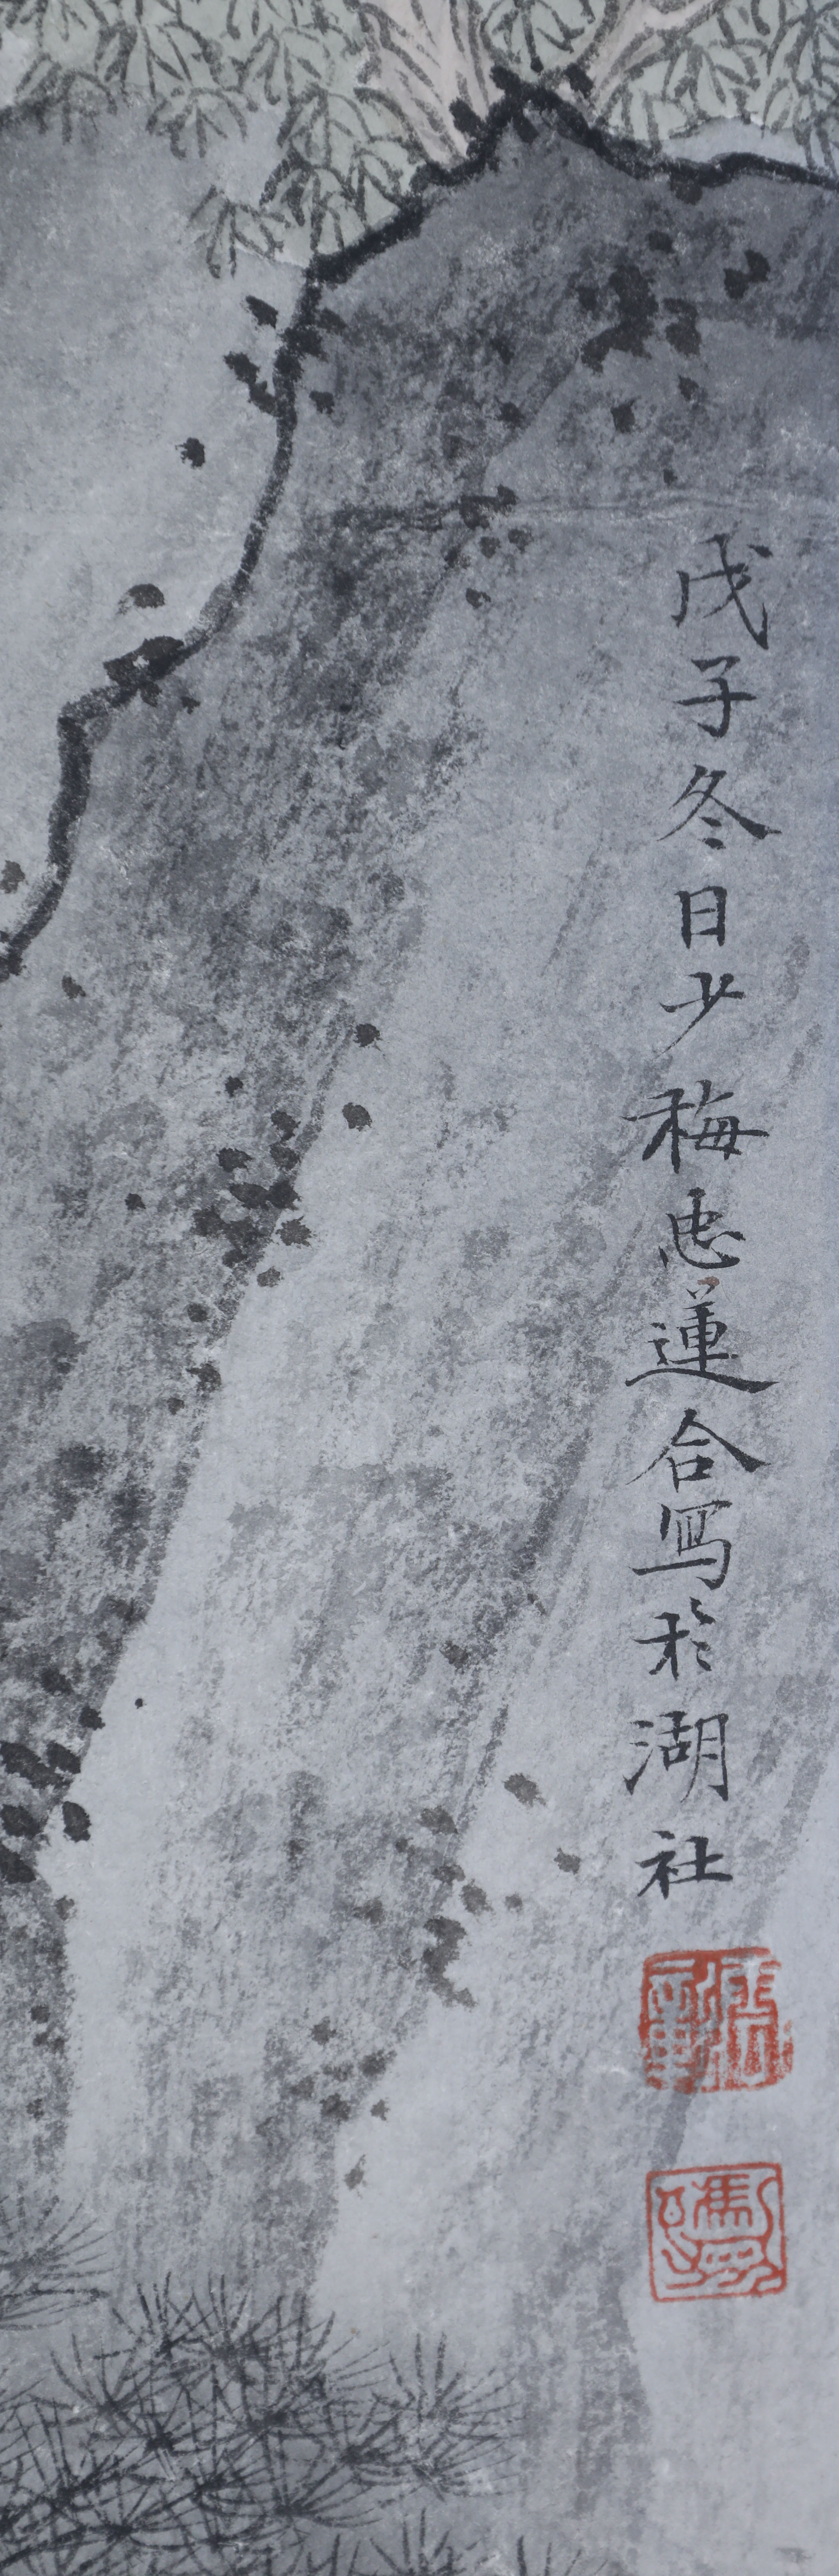 戊子冬日少梅忠蓮合写於湖社